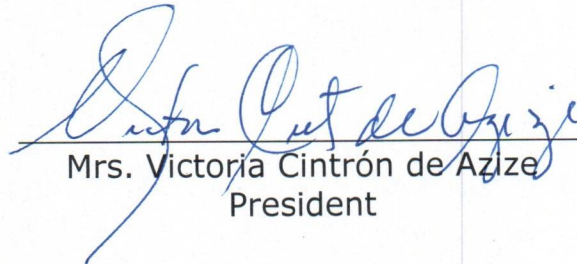 Victoria Cint de Azize
Mrs. Victoria Cintrón de Azize
President